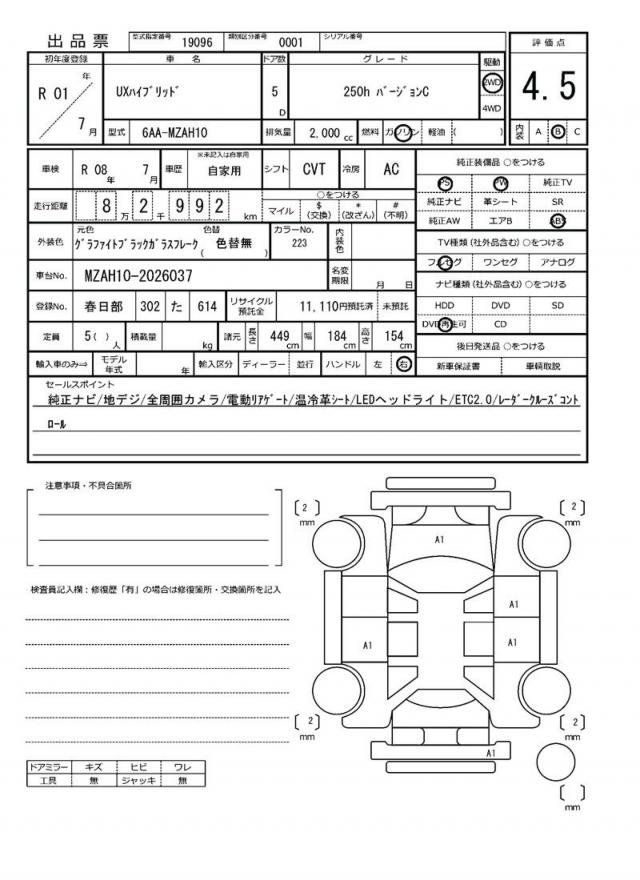 出品票 型式指定番号 19096 類別区分番号 0001 シリアル番号
初年度登録 車名 ドア数 グレード 駆動 評価点
R 01 年 7 月 UXハイブリッド 5 D 250h バージョンC 2WD 4WD 4.5
型式 6AA-MZAH10 排気量 2,000 cc 燃料 ガソリン 軽油 ( ) 内装 A B C
車検 R 08 年 7 月 車歴 ※未記入は自家用 自家用 シフト CVT 冷房 AC
走行距離 8 万 2 千 9 9 2 km
○をつける
マイル $ (交換) * (改ざん) # (不明)
外装色 元色 グラファイトブラックガラスフレーク 色替 ( 色替無 ) カラーNo. 223 内装色
車台No. MZAH10-2026037 名変期限 月 日
登録No. 春日部 302 た 614 リサイクル預託金 11,110円預託済 未預託
定員 5 ( ) 人 積載量 kg 諸元 長さ 449 cm 幅 184 cm 高さ 154 cm
輸入車のみ⇒ モデル年式 年 輸入区分 ディーラー 並行 ハンドル 左 右
純正装備品 ○をつける
PS PW 純正TV
純正ナビ 革シート SR
純正AW エアB ABS
TV種類 (社外品含む) ○をつける
フルセグ ワンセグ アナログ
ナビ種類 (社外品含む) ○をつける
HDD DVD SD
DVD再生可 CD
後日発送品 ○をつける
新車保証書 車輌取説
セールスポイント
純正ナビ/地デジ/全周囲カメラ/電動リアゲート/温冷革シート/LEDヘッドライト/ETC2.0/レーダークルーズコント
ロール
注意事項・不具合箇所
検査員記入欄:修復歴「有」の場合は修復箇所・交換箇所を記入
ドアミラー キズ ヒビ ワレ
工具 無 ジャッキ 無
[ 2 ] mm
[ 2 ] mm
A1
A1
A1
A1
[ 2 ] mm
[ 2 ] mm
A1
[ ] mm